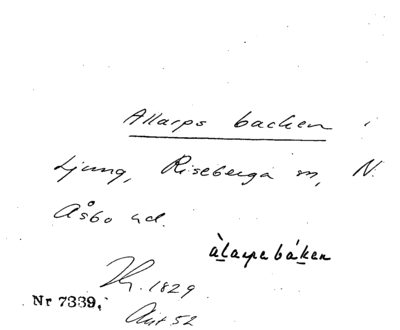 Allarps backen i
Ljung, Riseberga sn, N.
Åsbo hd.
àlarpebáken
1829
Nr 7339,
52